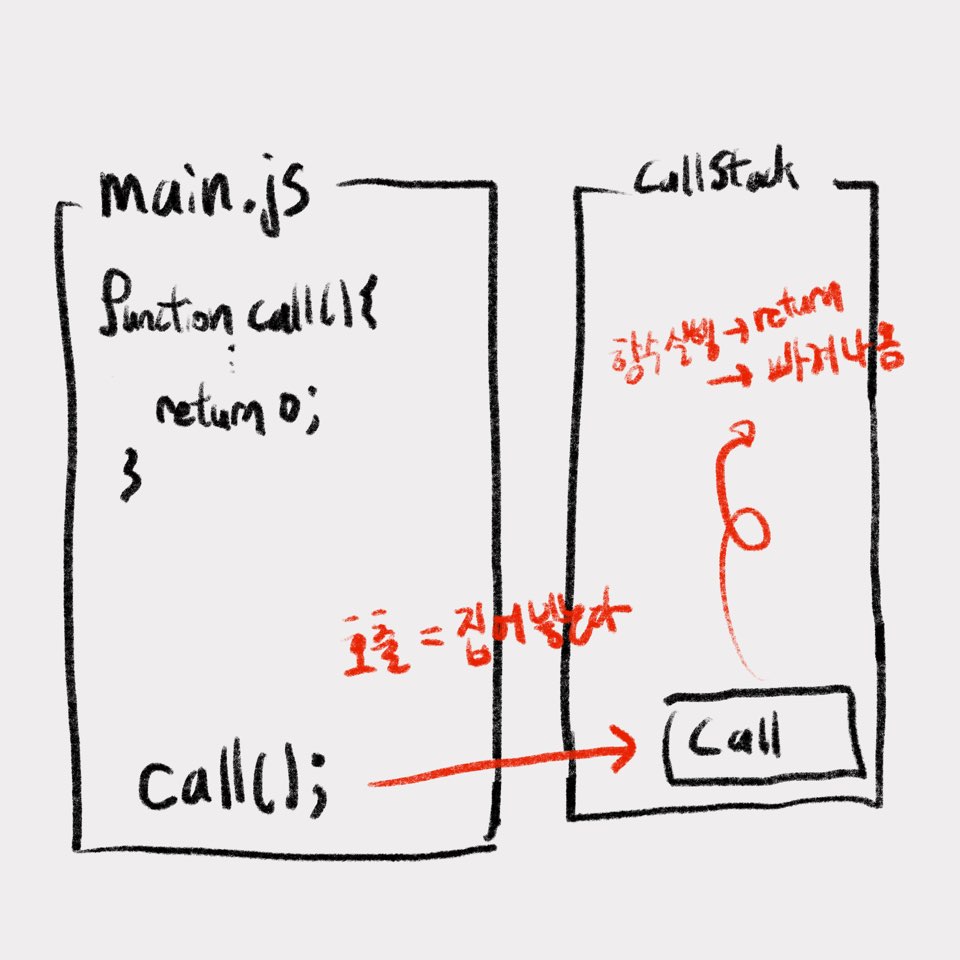 main.js
function call(){
⋮
return 0;
}
call();
호출 = 집어넣는다
CallStack
함수실행 → return
→ 빠져나옴
Call